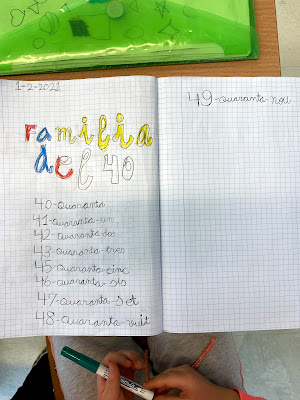 1-2-2021
Familia
del 40
40-quaranta
41-quaranta-un
42-quaranta-dos
43-quaranta-tres
45-quaranta-cinc
46-quaranta-sis
47-quaranta-set
48-quaranta-vuit
49-quaranta nou